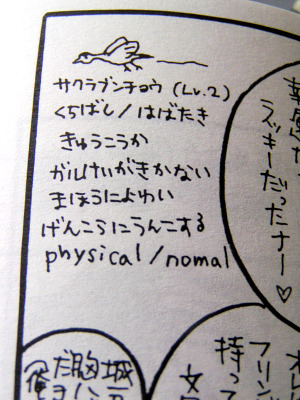 サクラブンチョウ (Lv.2)
くちばし/はばたき
きゅうこうか
ガルけいがきかない
まほうによわい
げんこうにうんこする
physical/nomal
ラッキーだったナー♡
持って